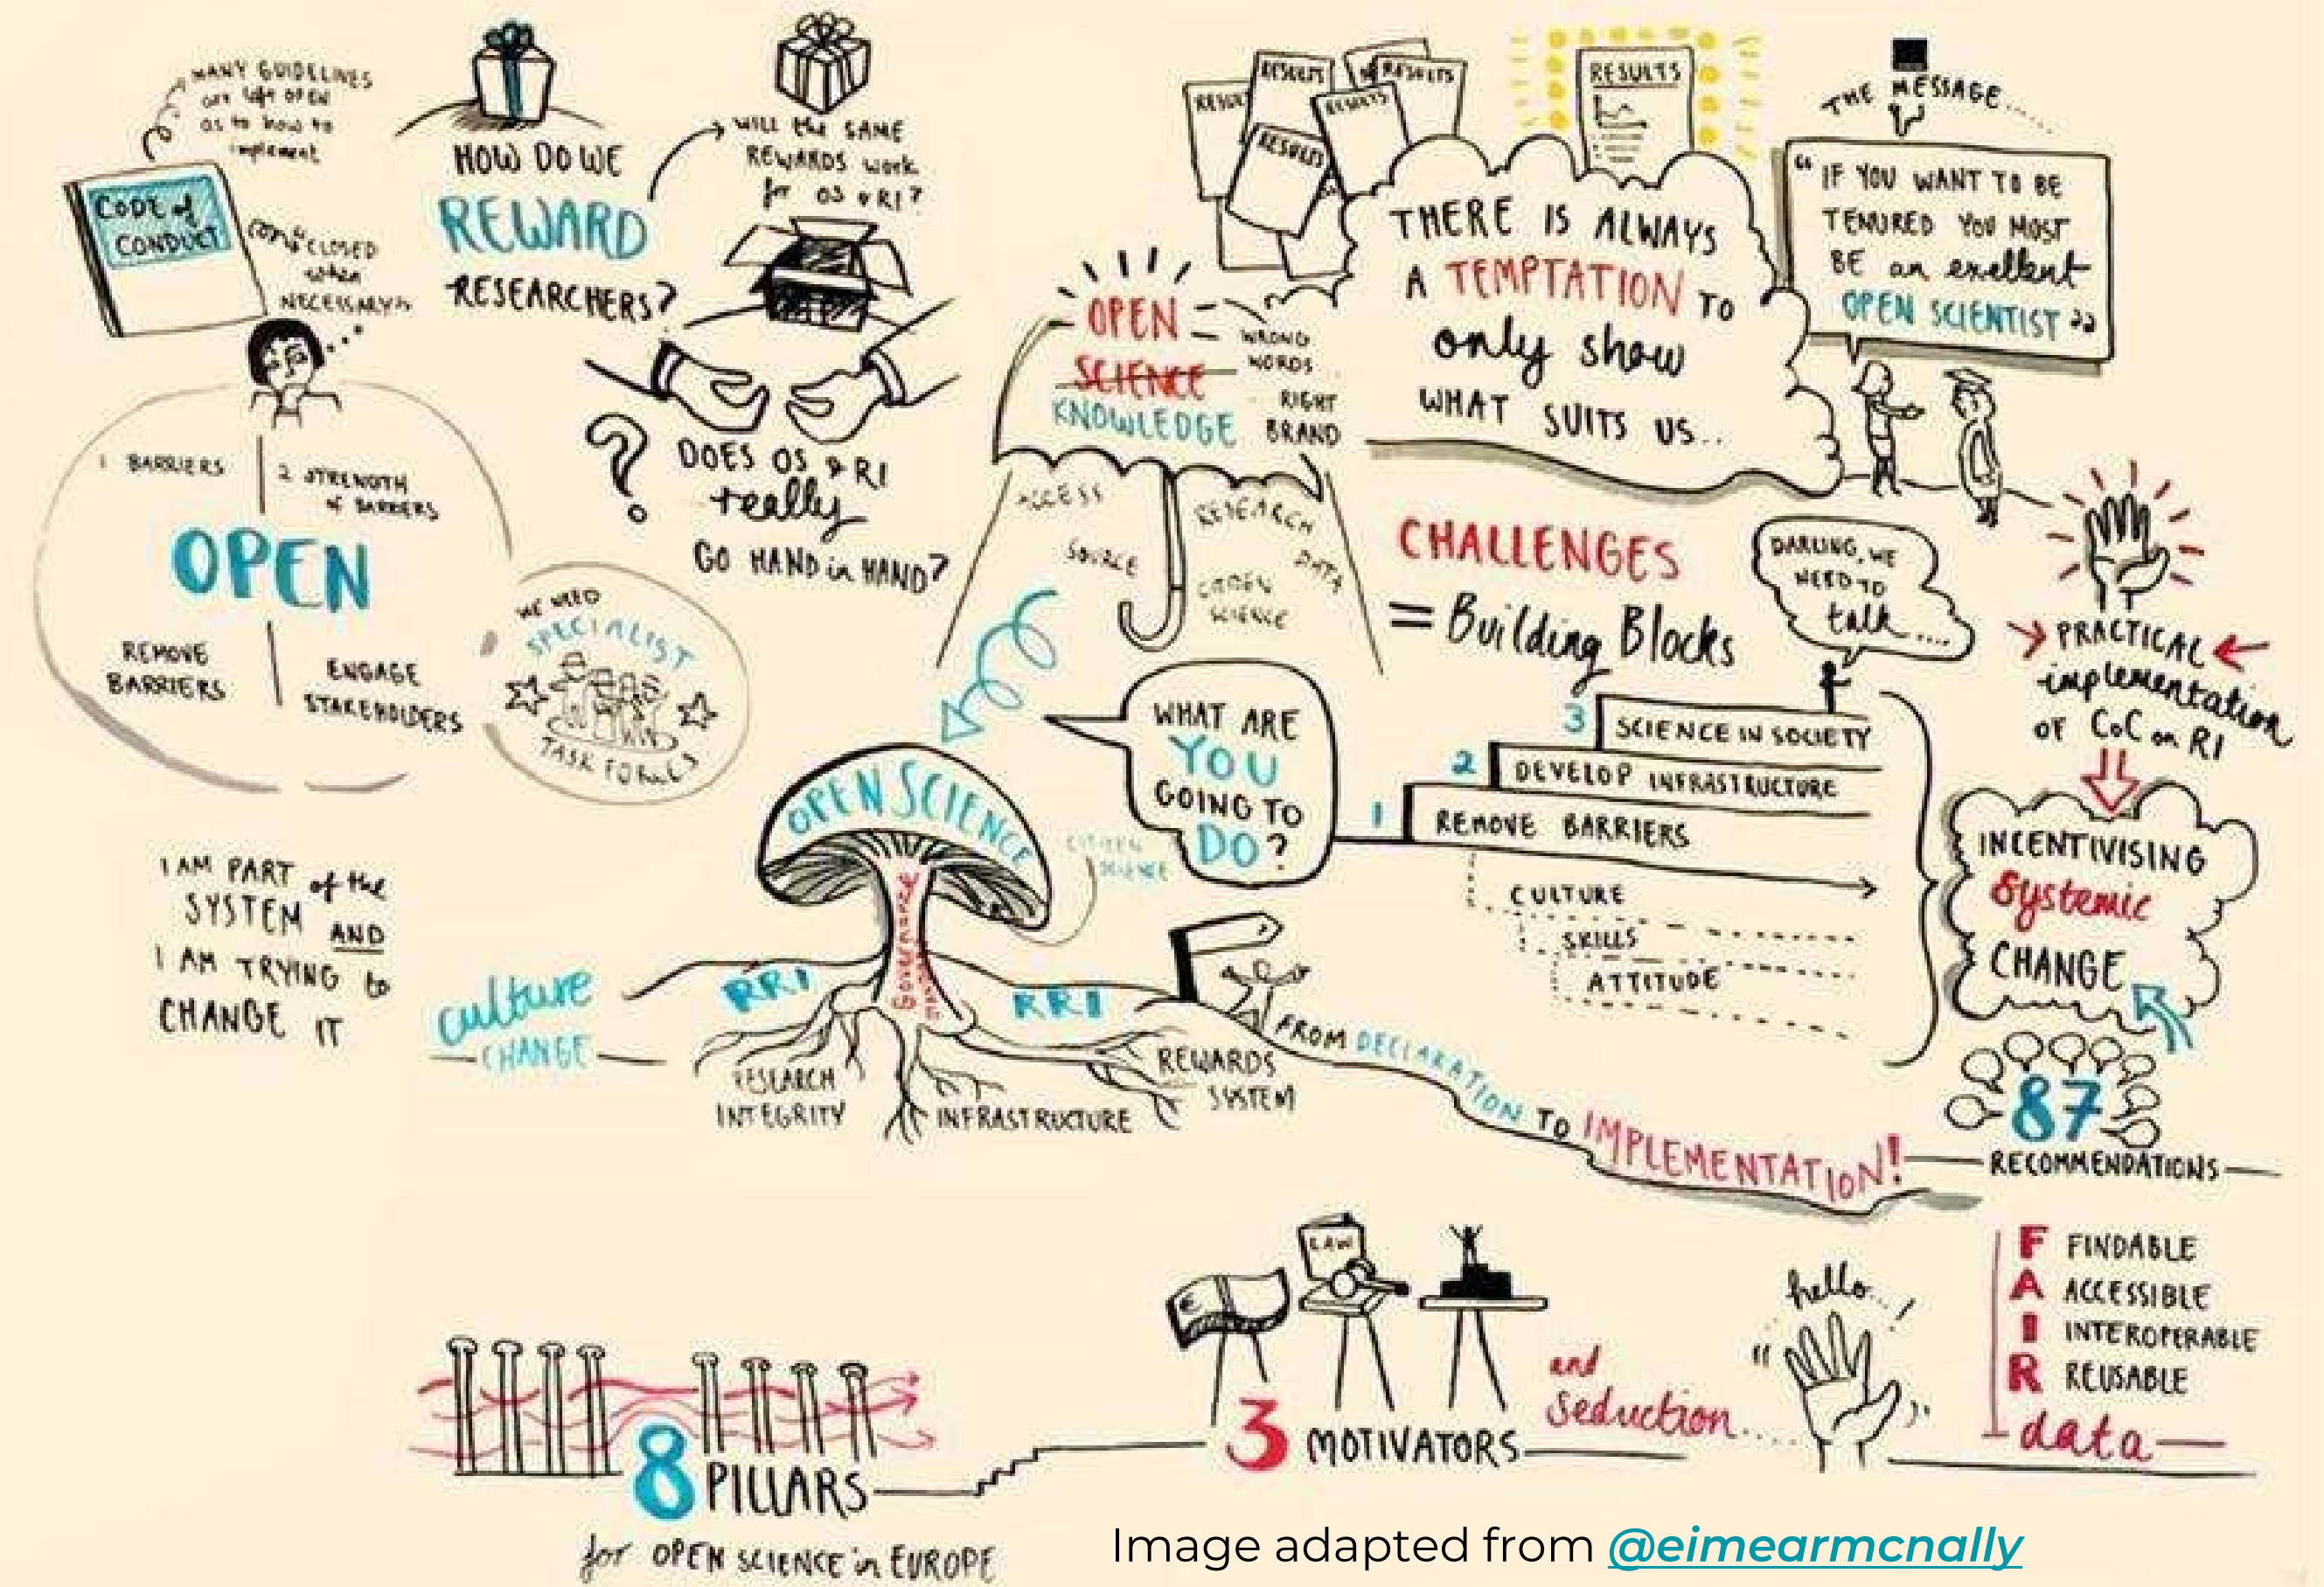 MANY GUIDELINES
are left OPEN
as to how to
implement
CODE of
CONDUCT
CLOSED
when
NECESSARY
HOW DO WE
REWARD
RESEARCHERS?
WILL the SAME
REWARDS work
for OS & RI?
DOES OS & RI
really
GO HAND in HAND?
1 BARRIERS
2 STRENGTH
of BARRIERS
OPEN
REMOVE
BARRIERS
ENGAGE
STAKEHOLDERS
WE NEED
SPECIALIST
TASK FORCES
I AM PART of the
SYSTEM AND
I AM TRYING to
CHANGE IT
RESULTS
RESULTS
RESULTS
RESULTS
RESULTS
THERE IS ALWAYS
A TEMPTATION TO
only show
WHAT SUITS US..
THE MESSAGE....
"IF YOU WANT TO BE
TENURED YOU MOST
BE an exellent
OPEN SCIENTIST"
OPEN
SCIENCE
KNOWLEDGE
WRONG
WORDS...
RIGHT
BRAND
ACCESS
SOURCE
RESEARCH
DATA
CITIZEN
SCIENCE
CHALLENGES
= Building Blocks
DARLING, WE
NEED TO
talk....
3 SCIENCE IN SOCIETY
2 DEVELOP INFRASTRUCTURE
1 REMOVE BARRIERS
CULTURE
SKILLS
ATTITUDE
PRACTICAL
implementation
OF CoC on RI
INCENTIVISING
Systemic
CHANGE
87
RECOMMENDATIONS
WHAT ARE
YOU
GOING TO
DO?
OPEN SCIENCE
CITIZEN
SCIENCE
Governance
culture
CHANGE
RRI
RRI
RESEARCH
INTEGRITY
INFRASTRUCTURE
REWARDS
SYSTEM
FROM DECLARATION TO IMPLEMENTATION!
8 PILLARS
for OPEN SCIENCE in EUROPE
€
LAW
3 MOTIVATORS
and
seduction....
hello...
F FINDABLE
A ACCESSIBLE
I INTEROPERABLE
R REUSABLE
data
Image adapted from @eimearmcnally